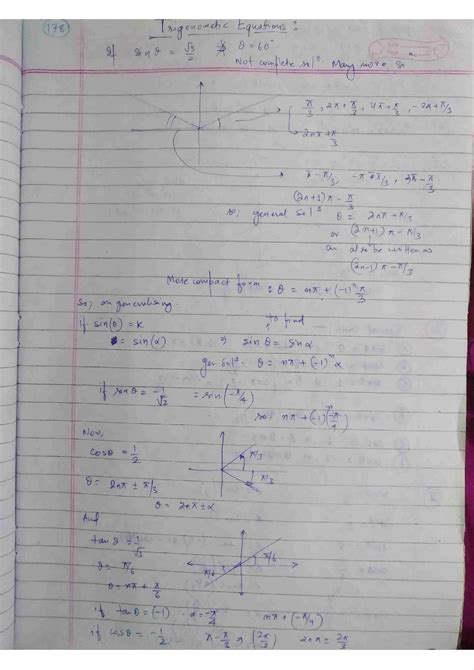 178
Trigonometric Equations :
If sinθ = √3/2 θ = 60°
Not complete solⁿ Many more so
π/3 , 2π + π/3 , 4π + π/3 , -2π + π/3
2nπ + π/3
π - π/3 , -π - π/3 , 3π - π/3
(2n+1)π - π/3
so, general solⁿ θ = 2nπ + π/3
or (2n+1)π - π/3
can also be written as
(2n-1)π - π/3
More compact form : θ = nπ + (-1)ⁿ π/3
So, on generalising.
if sin(θ) = k to find
= sin(α) ⇒ sinθ = sinα
gen solⁿ : θ = nπ + (-1)ⁿ α
if sinθ = -1/√2 = sin(-π/4)
so: nπ + (-1)ⁿ(-π/4)
Now,
cosθ = 1/2
π/3
θ = 2nπ ± π/3
π/3
θ = 2nπ ± α
And
tanθ = 1/√3
π/6 π/6
θ = π/6
θ = nπ + π/6
if tanθ = (-1) α = -π/4 nπ + (-π/4)
if cosθ = -1/2 π - π/3 = (2π/3) 2nπ ± 2π/3